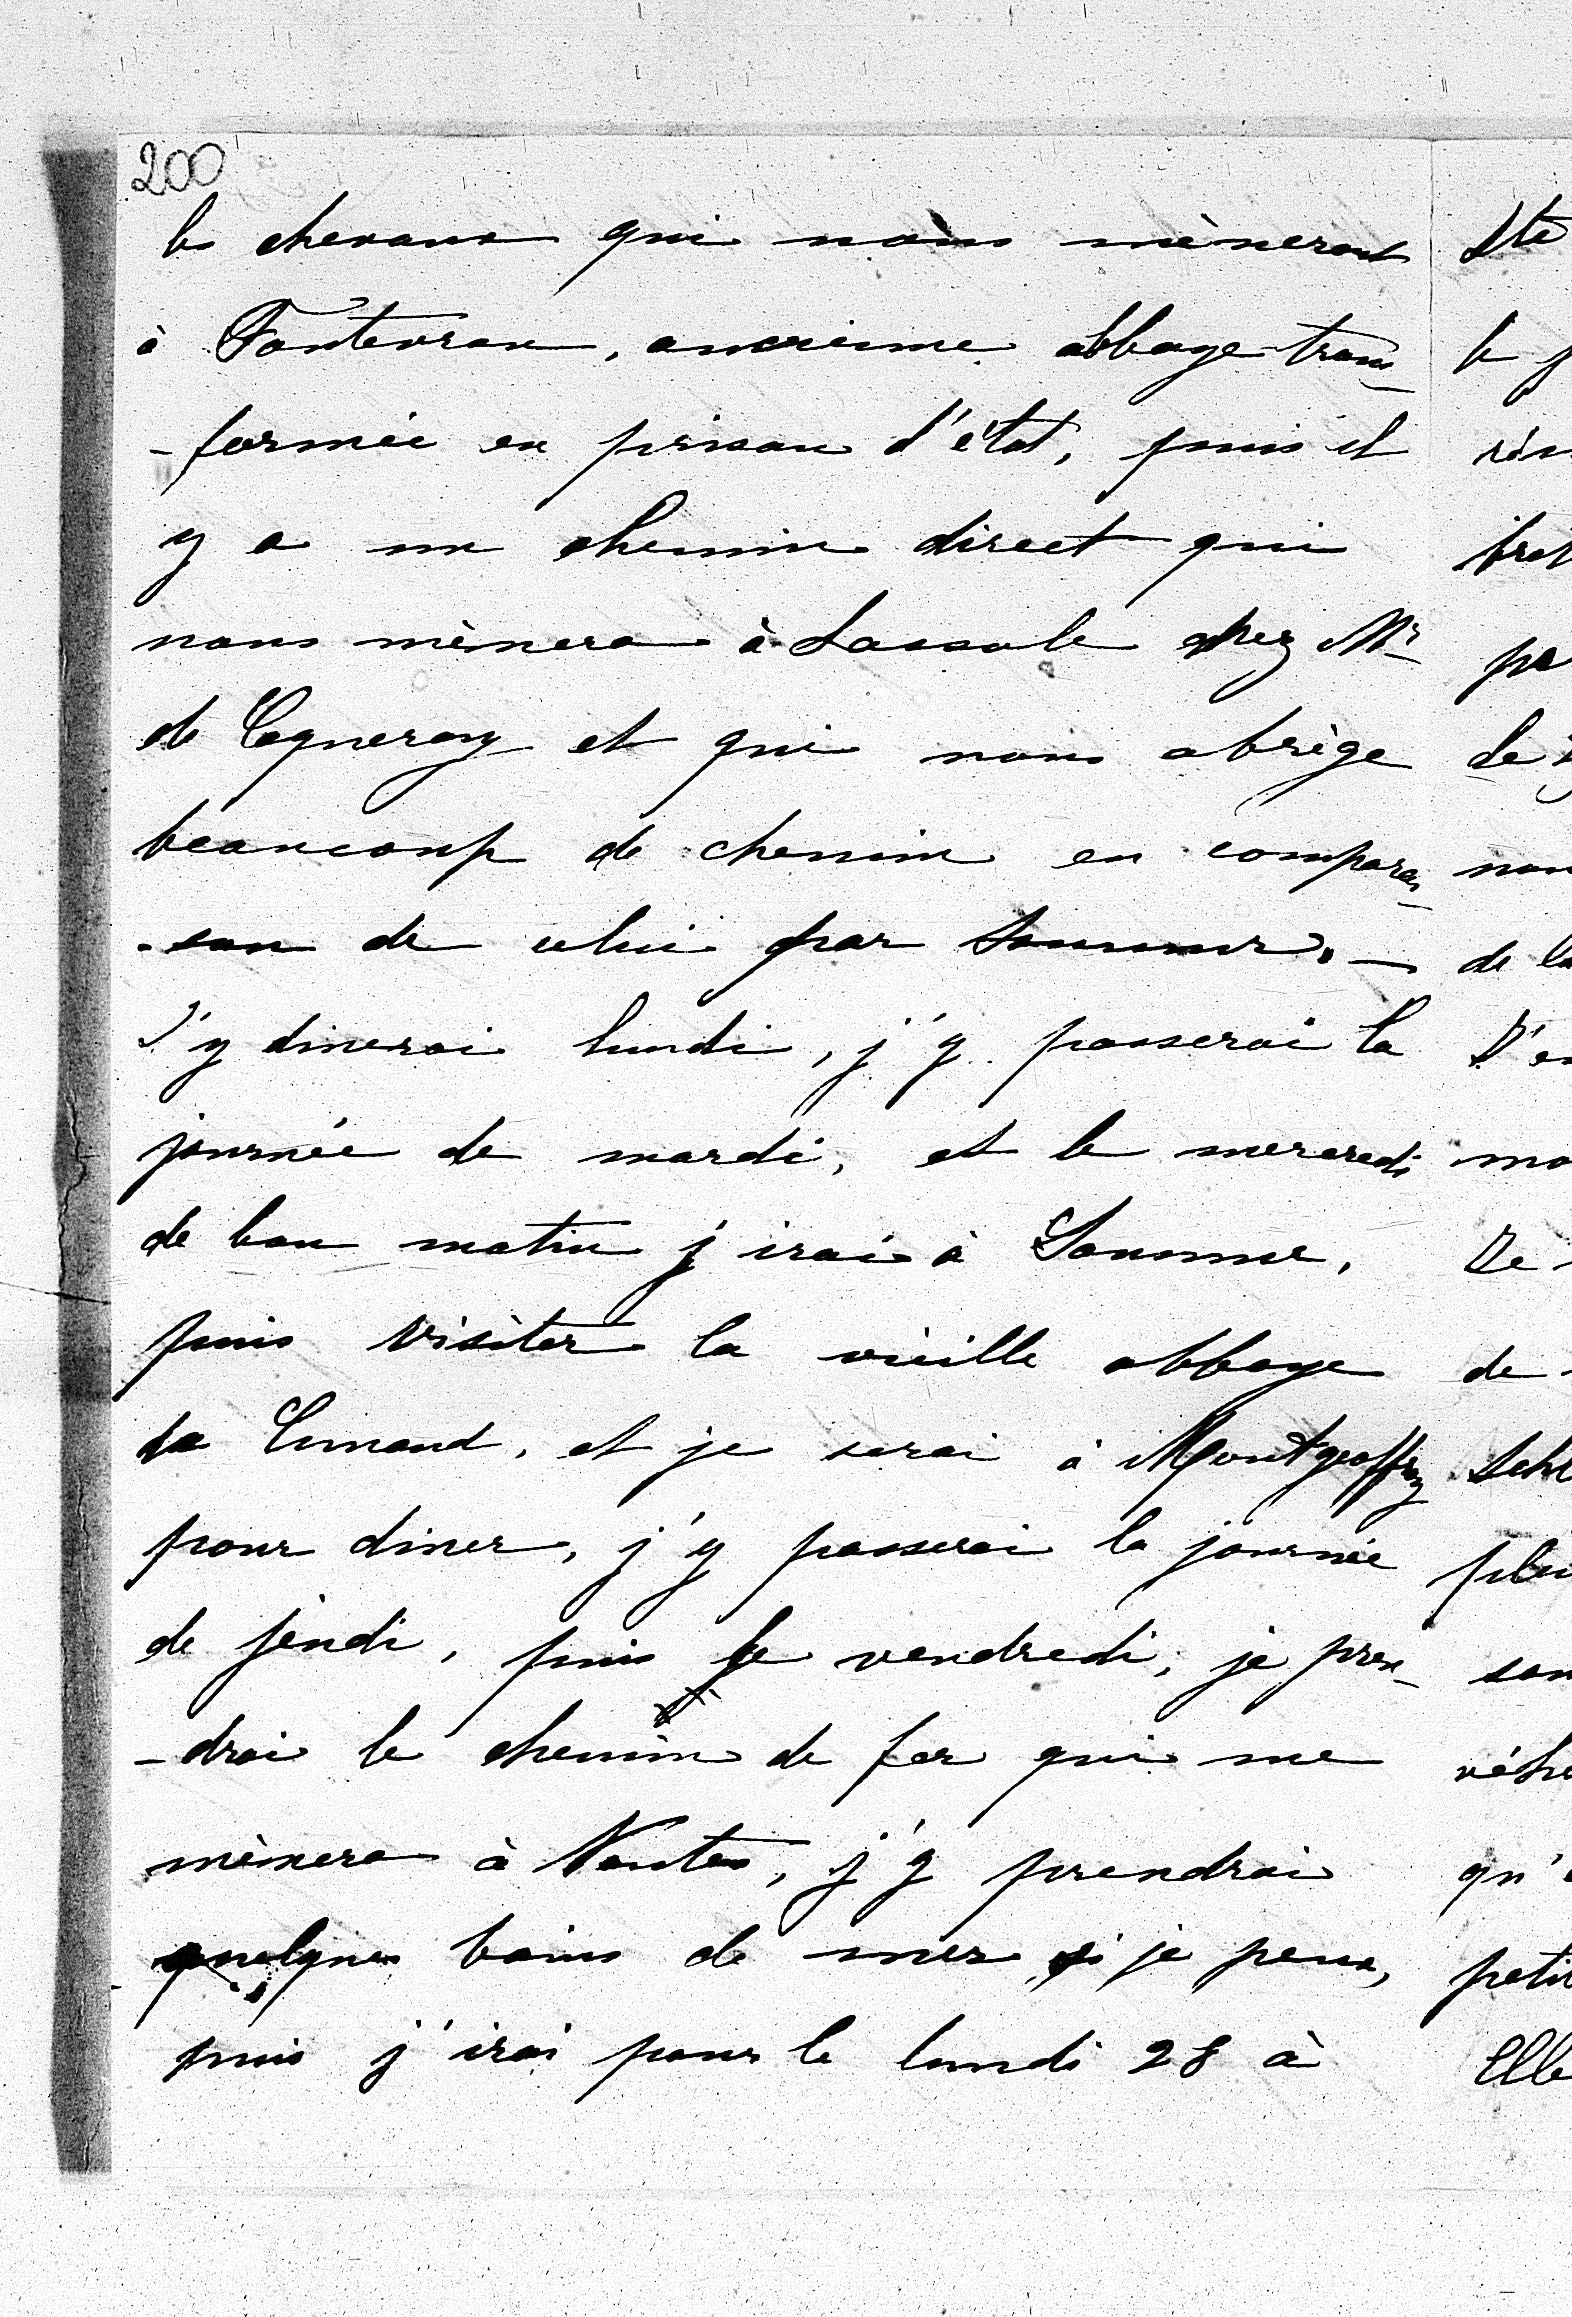 200
les chevaux qui nous mèneront
à Fontevrau, ancienne abbaye trans
-formée en prison d'état, puis il
y a un chemin direct qui
nous mènera à Lassale chez Mr
de et qui nous abrège
beaucoup de chemin en comparai
-son de celui par Saumur. —
J'y dinerai lundi, j'y passerai la
journée de mardi, et le mercredi
de bon matin j'irai à Saumur,
puis visiter la vieille abbaye
de Cunaud, et je serai à Montgeoffroy
pour diner, j'y passerai la journée
de jeudi, puis le vendredi, je pren
-drai le chemin de fer qui me
mènera à Nantes, j'y prendrai
quelques bains de mer si je peux,
puis j'irai pour le lundi 28 à